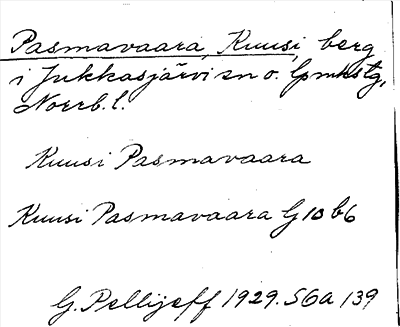 Pasmavaara, Kuusi, berg
i Jukkasjärvi sn o. lpmkstg,
Norrb. l.
Kuusi Pasmavaara
Kuusi Pasmavaara G10 b6
G. Pellijeff 1929. S6a 139